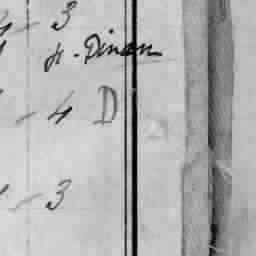 - 3
- Dinan
- 4 D
- 3